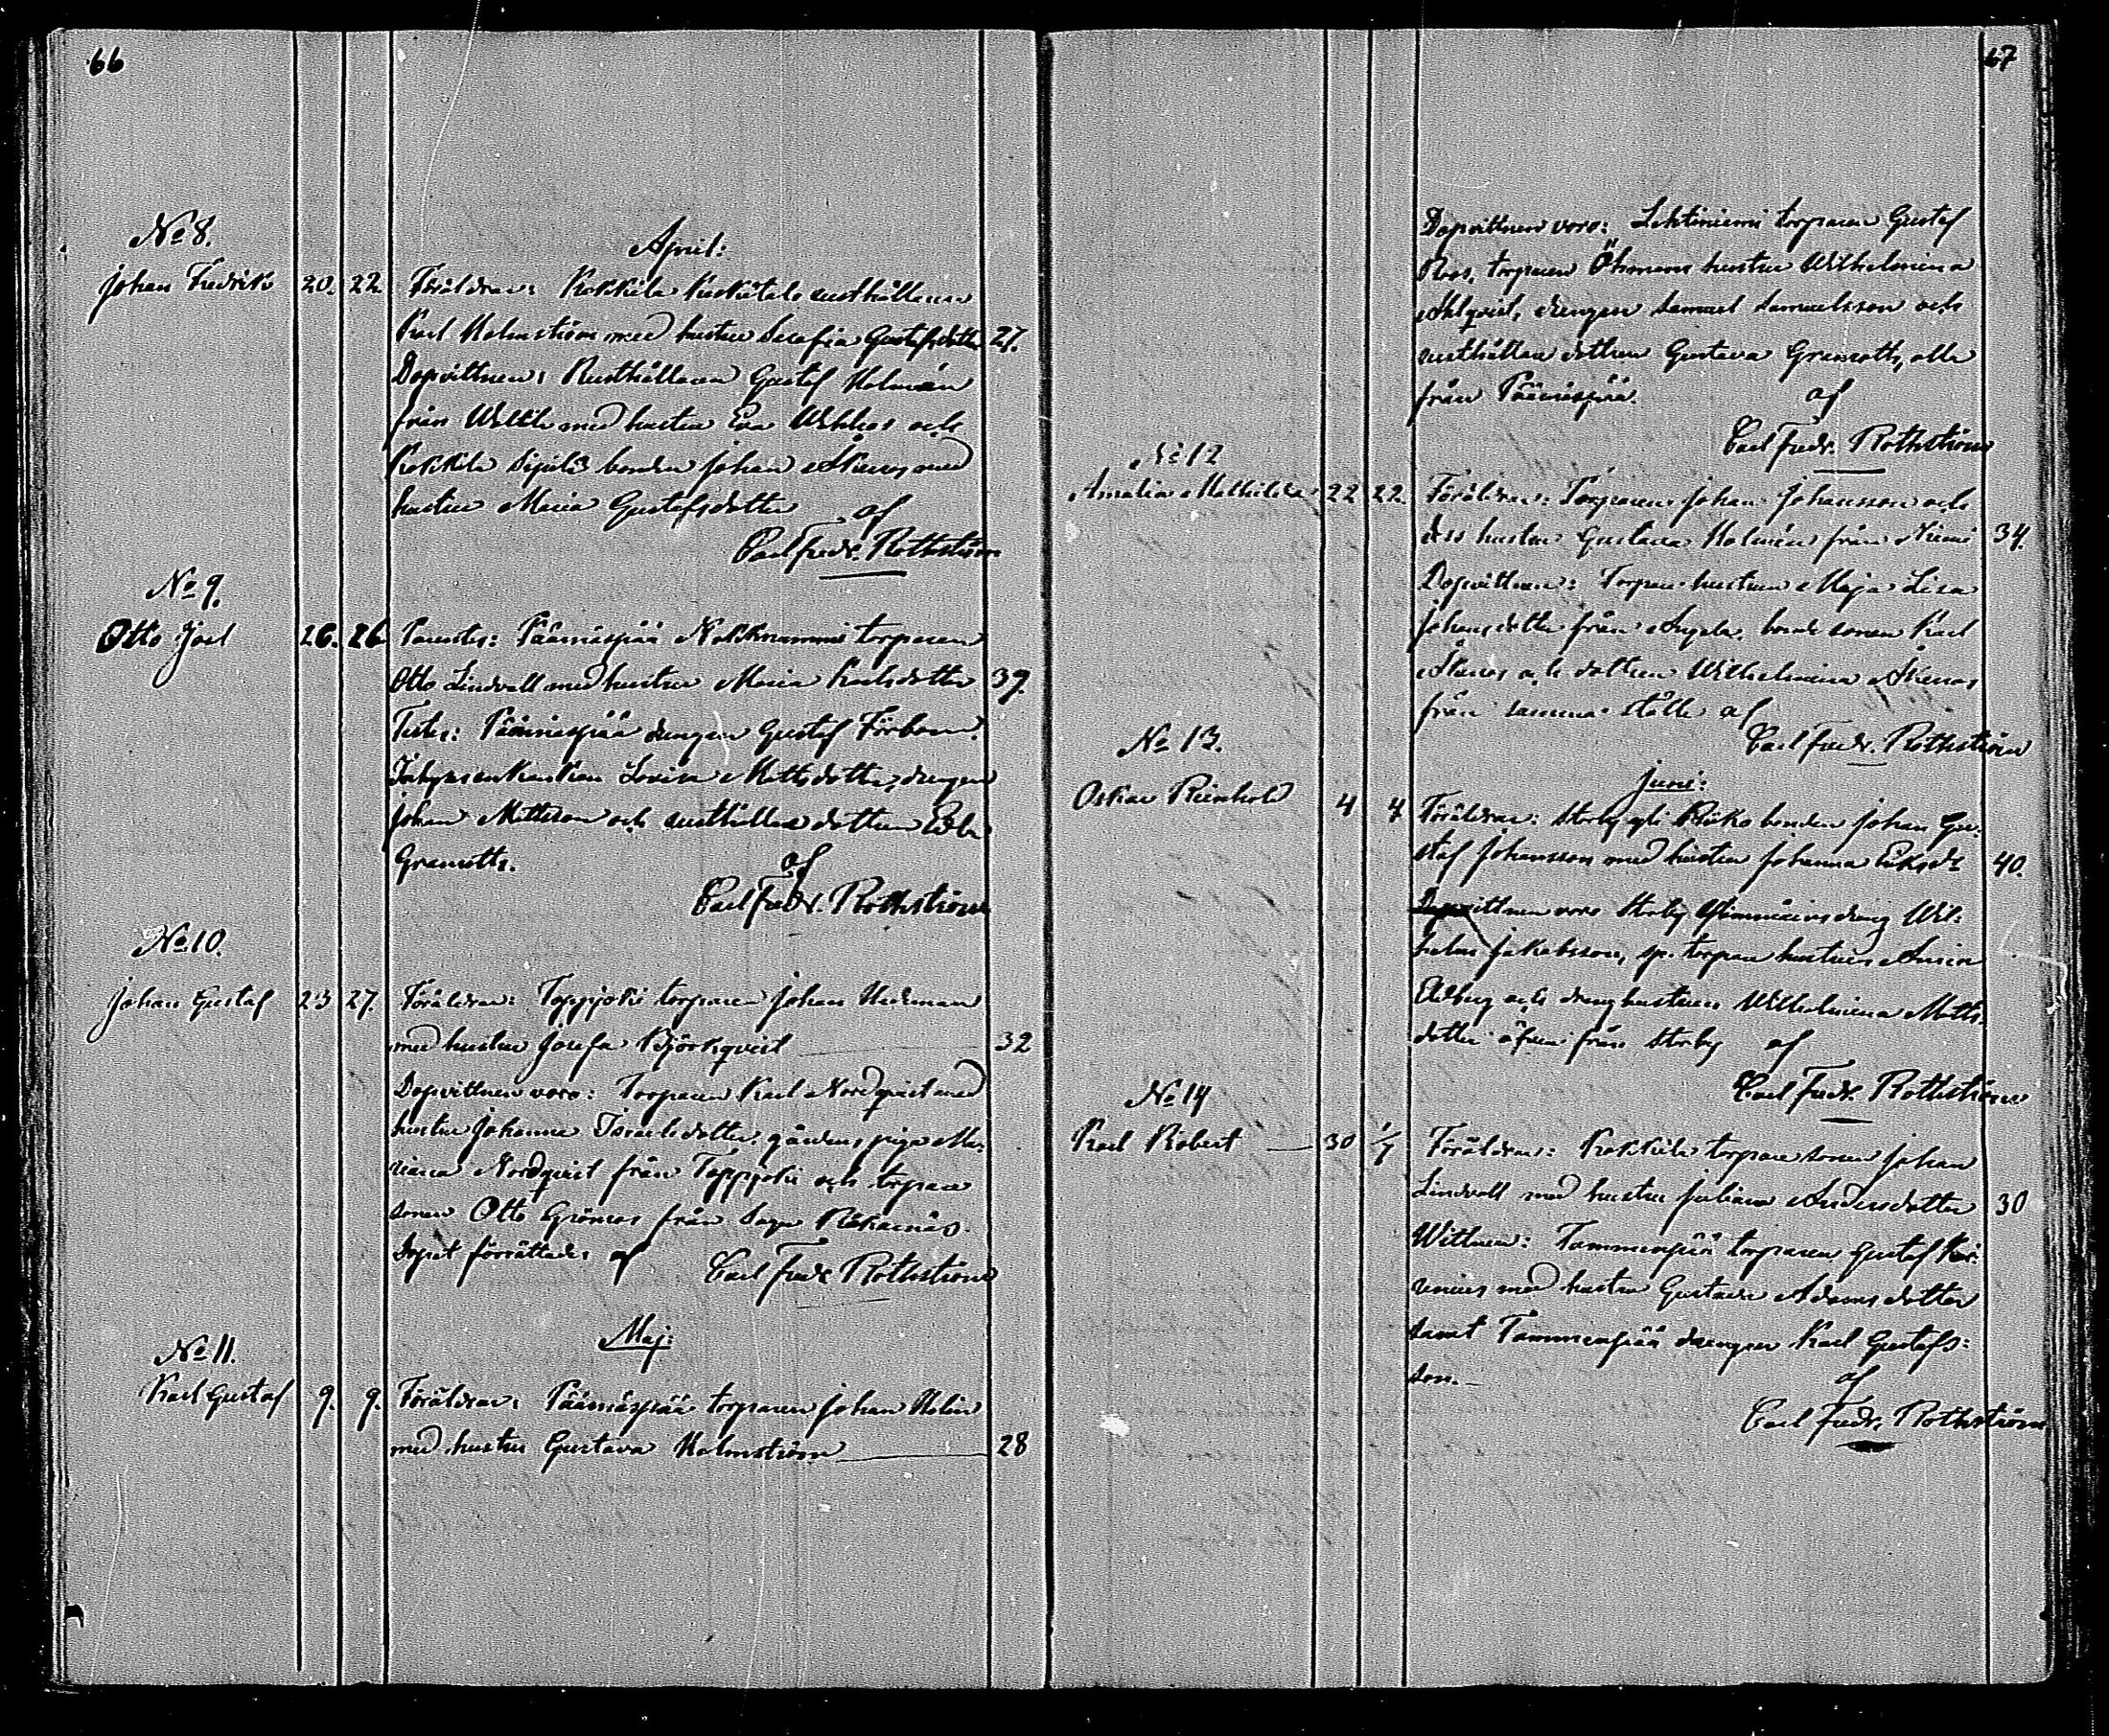 66
No 8.
April:
Johan Fredrik 20. 22 Föräldrar: Kokkila Keskitalo rusthållaren
Karl Holmström med hustru Serafia Gustafsdotter 27.
Dopvittnen: Rusthållaren Gustaf Holmén
från Weltti med hustru Eva Wikhos och
Kokkila Sipilä bonden Johan Stenros med
hustru Maria Gustafsdotter af
Carl Fredr. Rothström
No 9.
Otto Joel 26. 26 Parentes: Päärnäspää torparen
Otto Lindvall med hustru Maria Karlsdotter 39.
Testes: Päärnäspää drengen Gustaf Förbom.
Lovisa Mattsdotter, drengen
Johan Mattsson och rusthållare dottren Edla
Granroth. af
Carl Fredr. Rothström
No 10.
Johan Gustaf 23 27. Föräldrar: Toppjoki torparen Johan Hedman
med hustru Josefa Björkqvist 32
Dopvittnen voro: Torparen Karl Nordqvist med
hustru Johanna Israelsdotter, gårdens piga Ma-
riana Nordqvist från Toppjoki och torpare
sonen Otto Grönroos från Sagu Kåkarnäs.
Dopet förrättades af Carl Fredr. Rothström
Maj:
No 11.
Karl Gustaf 9. 9. Föräldrar: Päärnäspää torparen Johan Helin
med hustru Gustava Holmström 28
67
Dopvittnen voro: Lehtiniemi torparen Gustaf
Roos, torparen Öhmans hustru Wilhelmina
Ahlqvist, drengen Samuel Samuelsson och
rusthållare dottren Gustava Granroth, alla
från Päärnäspää. af
Carl Fredr. Rothström
No 12
Amalia Mathilda 22 22. Föräldrar: Torparen Johan Johansson och
dess hustru Gustava Holmén från Niemi 34.
Dopvittnen: Torpare hustrun Maja Lisa
Johansdotter från Angela, bonde sonen Karl
Stenros och dottren Wilhelmina Stenros
från samma ställe af
Carl Fredr. Rothström
No 13.
Juni:
Oskar Reinhold 4 4 Föräldrar: Storby yli Kuko bonden Johan Gu-
staf Johansson med hustru Johanna Eriksdr 40.
Dopvittnen voro Storby dreng Wil-
helm Jakobsson, sp. torpare hustrun Anna
Edberg och dreng hustrun Wilhelmina Matts-
dotter äfven från Storby af
Carl Fredr. Rothström
No 14
Karl Robert 30 1/7 Föräldrar: Kokkila torpare sonen Johan
Lindvall med hustru Juliana Andersdotter 30
Wittnen: Tammenpää torparen Gustaf
med hustru Gustava Adamsdotter
samt Tammenpää drengen Karl Gustafs-
son. af
Carl Fredr. Rothström